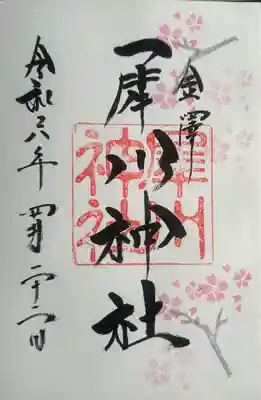 金澤
犀川神社
犀川
神社
令和六年四月二十二日